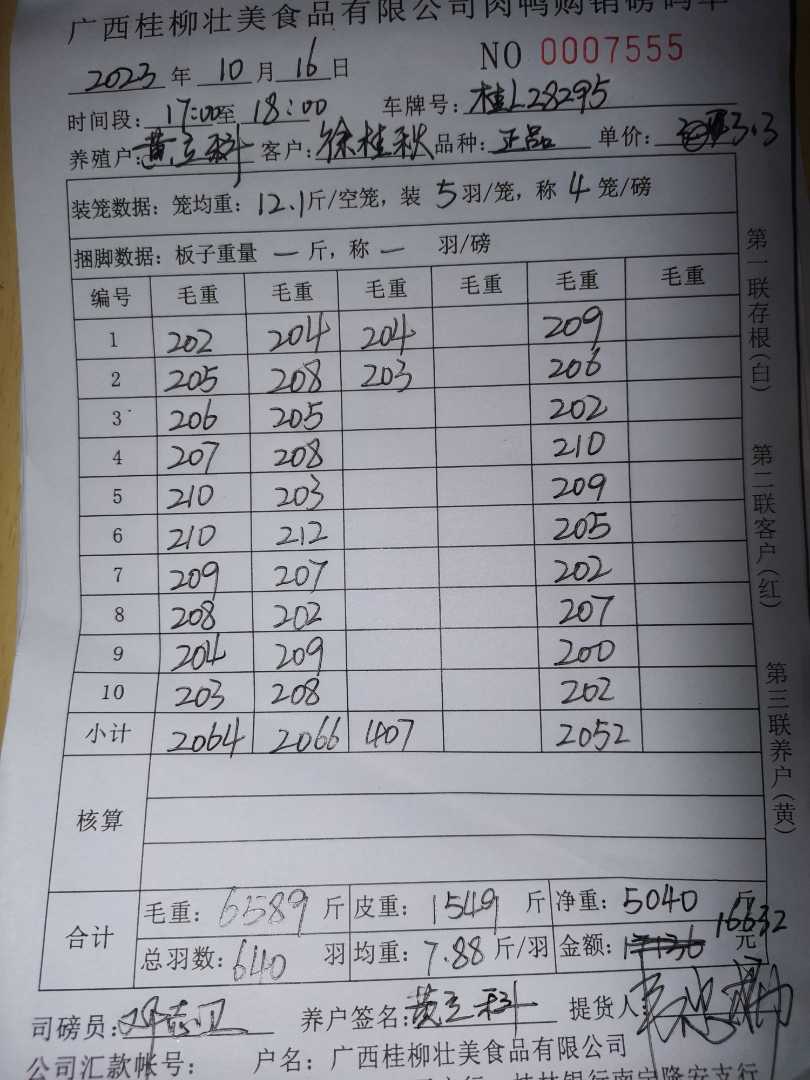 广西桂柳壮美食品有限公司肉鸭购销磅码单
2023年10月16日 NO 0007555
时间段：17:00至18:00 车牌号：桂L28295
养殖户：黄立科 客户：徐桂秋 品种：正品 单价：3.3
装笼数据：笼均重：12.1斤/空笼，装5羽/笼，称4笼/磅
捆脚数据：板子重量一斤，称一羽/磅
编号 毛重 毛重 毛重 毛重 毛重 毛重
1 202 204 204 209
2 205 208 203 206
3 206 205 202
4 207 208 210
5 210 203 209
6 210 212 205
7 209 207 202
8 208 202 207
9 204 209 200
10 203 208 202
小计 2064 2066 407 2052
核算
合计
毛重：6589斤 皮重：1549斤 净重：5040斤
总羽数：640羽 均重：7.88斤/羽 金额：17136 16632元
司磅员： 养户签名：黄立科 提货人
公司汇款帐号： 户名：广西桂柳壮美食品有限公司
桂林银行南宁隆安支行
第一联存根(白) 第二联客户(红) 第三联养户(黄)